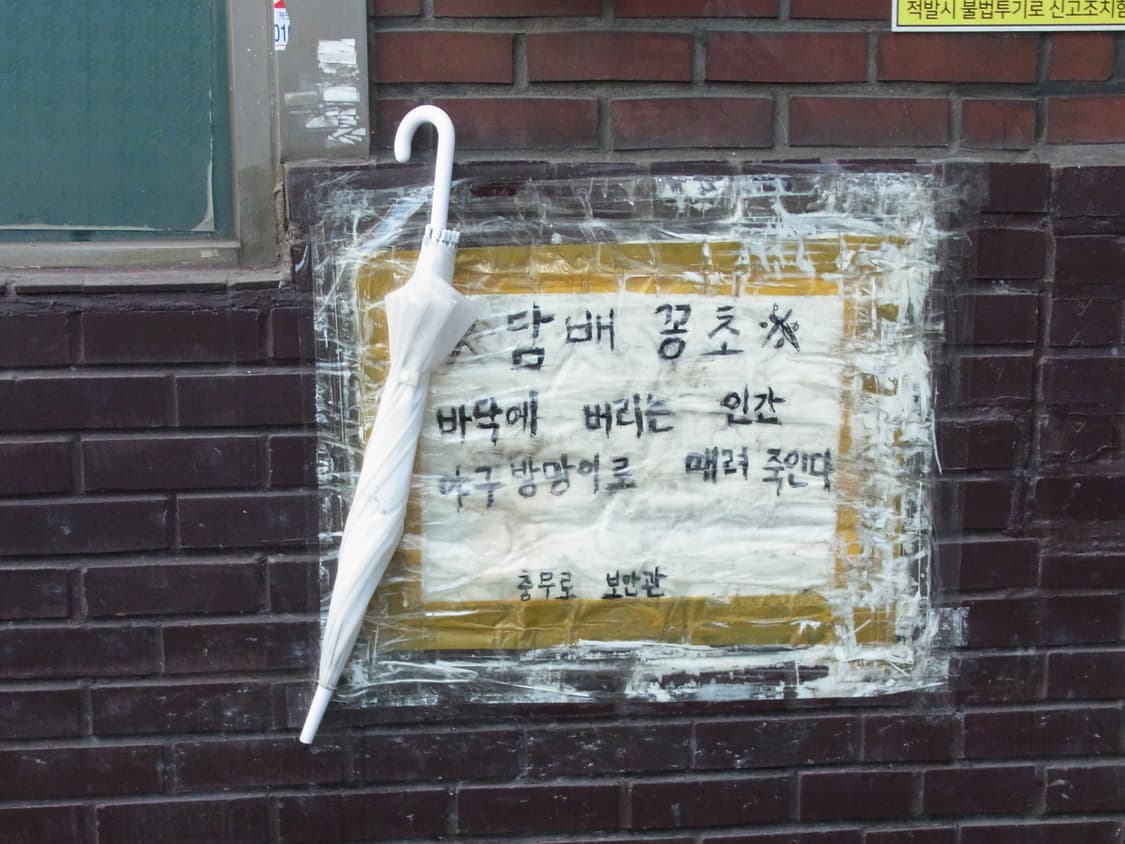 적발시 불법투기로 신고조치함
※ 담배 꽁초 ※
바닥에 버리는 인간
야구방망이로 때려 죽인다
충무로 보안관